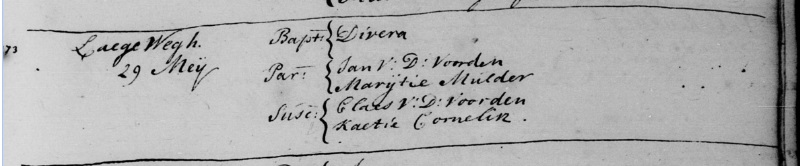 73 Laege Wegh. Bapt: Divera
29 Meÿ Par: Jan V: D: Voorden
Marÿtie Mulder
Susc: Claes V: D: Voorden
Kaetie Cornelis.